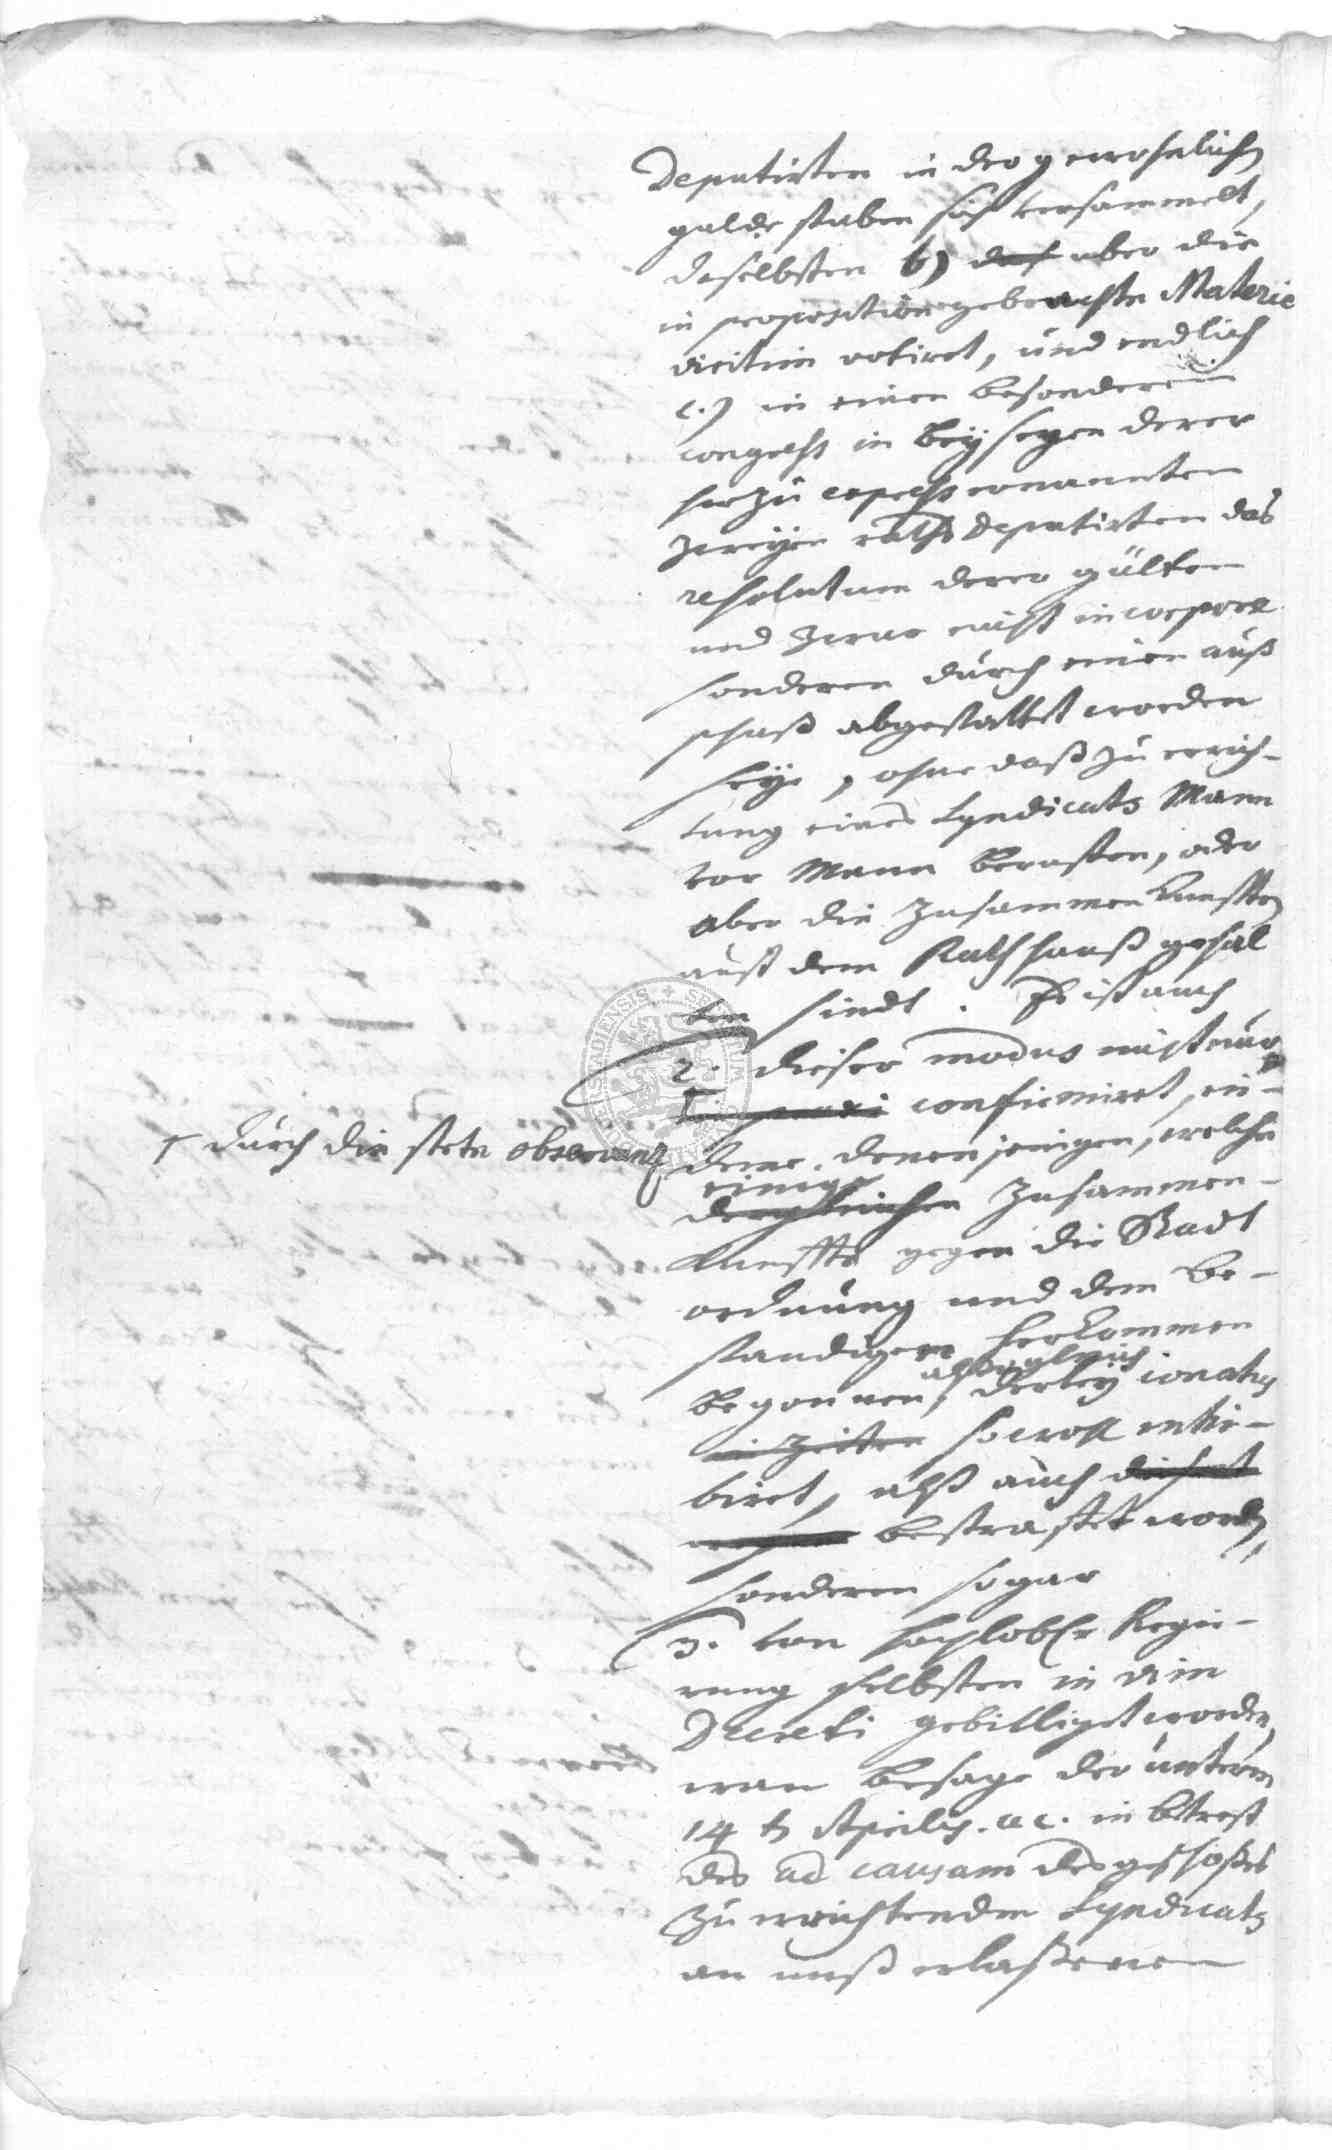 Deputirten in der gewohnlichen
gulde stuben sich versammelt,
daselbsten b) auf uber die
in proposition gebrachte Materie
viritim votiret, und endlich
c.) in einen besonderen
congress in beysegen derer
hierzu express ernannten
zweyen raths Deputirten das
resolutum derer gülten
und zwar nicht in corpore
sonderen durch einen auß
schuß abgestattet worden
seye, ohne daß zu errich-
tung eines Syndicats Mann
vor Mann beruffen, oder
aber die Zusammenkunfften
auß dem Rathhauß gehal
ten sindt. Es ist auch
2. dieser modus nicht nur
confirmiret, in-
Γ durch die stete observantz
deme denen jenigen, welche
einige
dergleichen Zusammen-
kunffte gegen die Stadt
ordnung und dem be-
standigen herkommen
alsogleich
begonnen, derley conatus
in Zeiten sowohl inhi-
biret, alß auch
bestraffet worden,
sonderen sogar
3. von hochlobl.r Regie-
rung selbsten in vim
Decreti gebilliget worden,
wan besage der unterm
14 t. Aprilis a. c. in betreff
des ad causam des geschoßes
zu errichtenden Syndicats
an unß erlaßenen